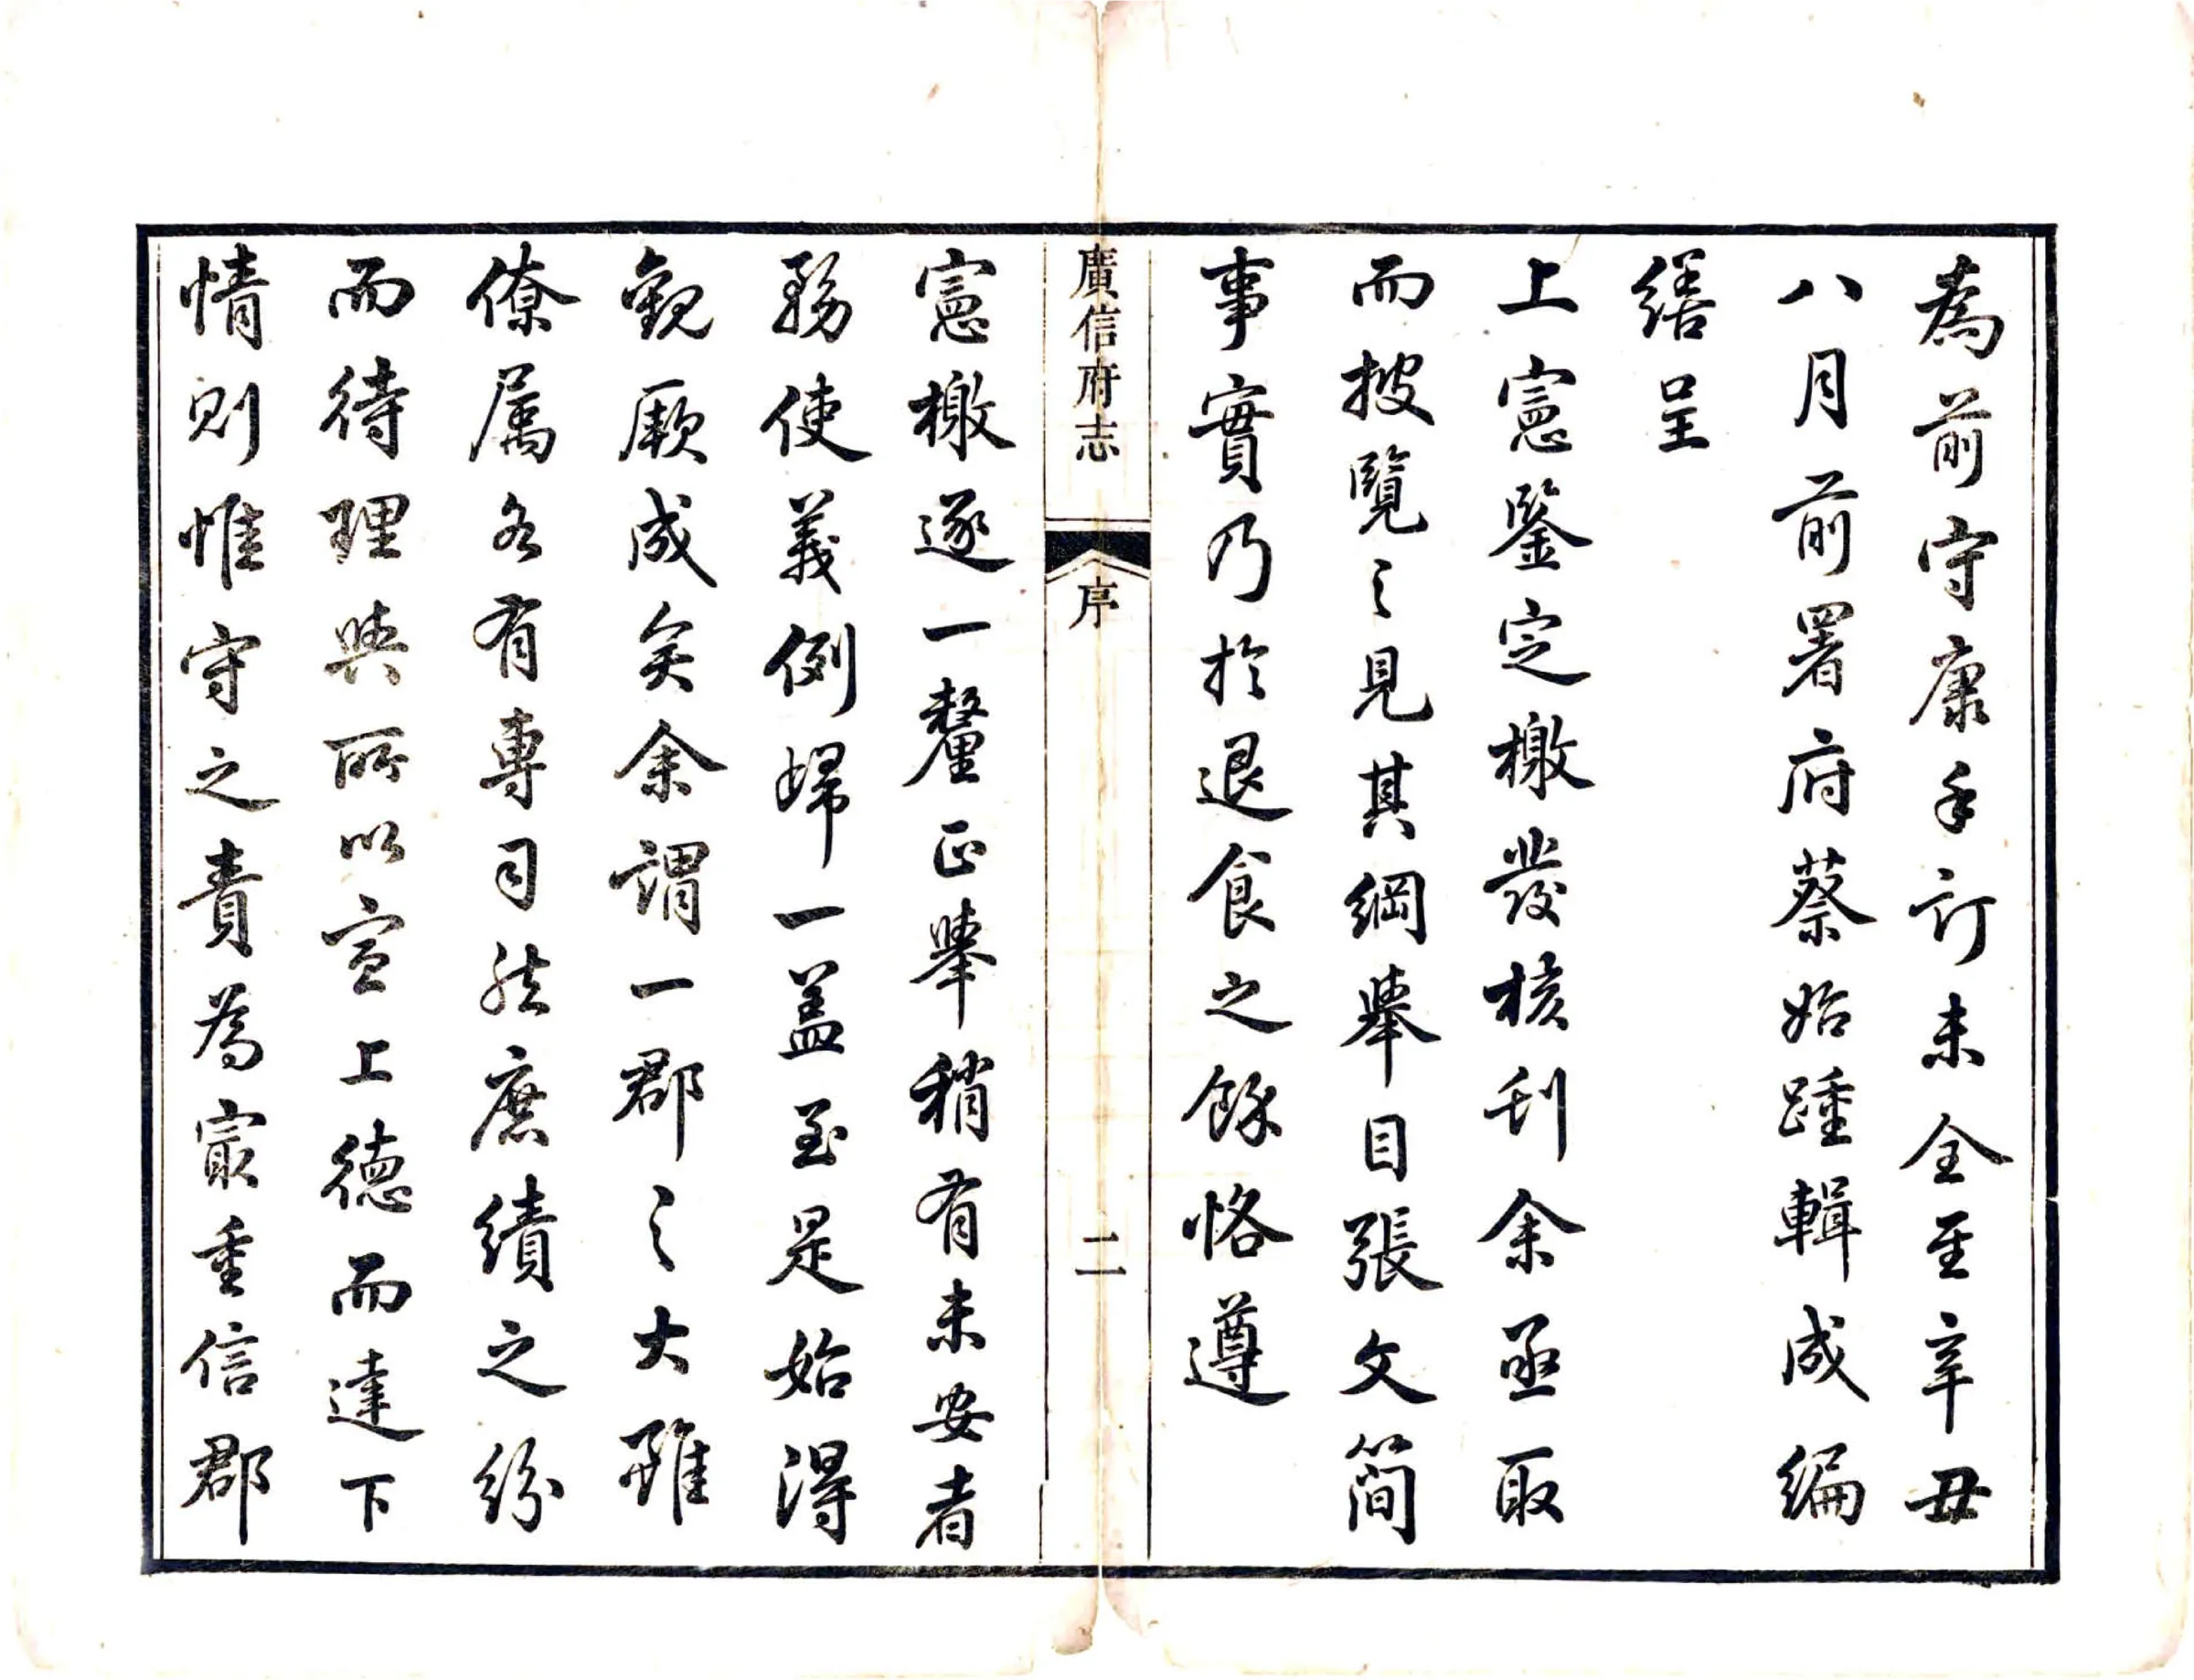 為前守康手訂未全至辛丑
八月前署府蔡始踵輯成編
繕呈
上憲鑒定檄發核刊余亟取
而披覽之見其綱舉目張文簡
事實乃於退食之餘恪遵
廣信府志
序
二
憲檄逐一釐正舉稍有未安者
務使義例歸一蓋至是始得
觀厥成矣余謂一郡之大雖
僚屬各有專司然庶績之紛
而待理與所以宣上德而達下
情則惟守之責為最重信郡